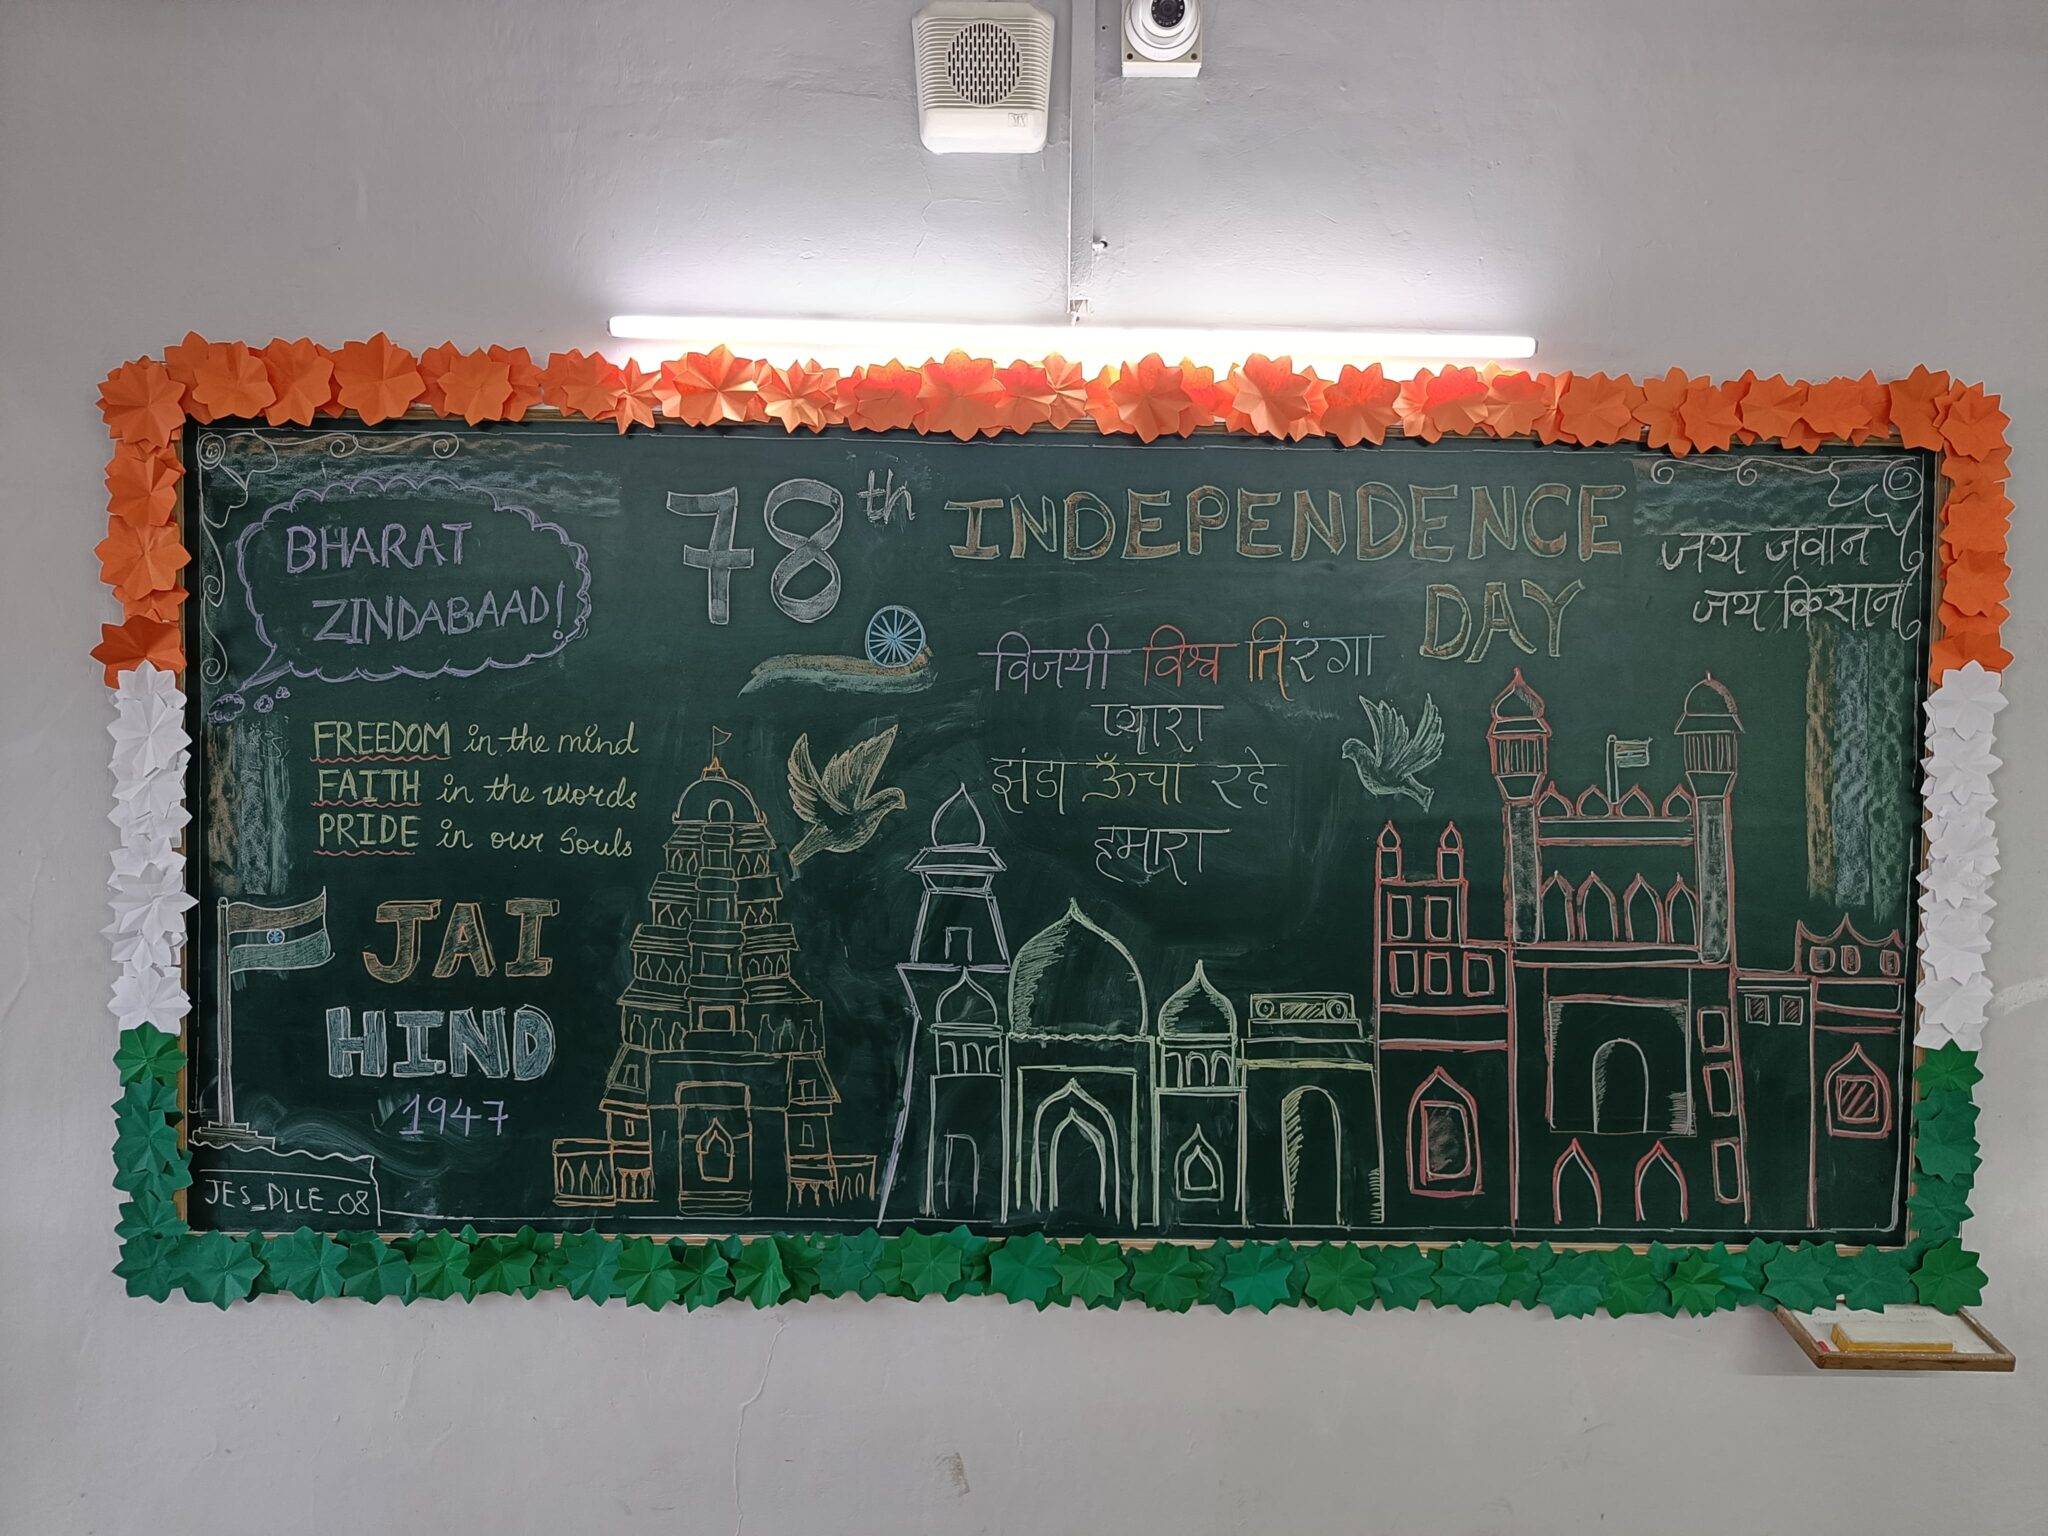 BHARAT
ZINDABAAD!
78th INDEPENDENCE
DAY
जय जवान
जय किसान
विजयी विश्व तिरंगा
प्यारा
झंडा ऊँचा रहे
हमारा
FREEDOM in the mind
FAITH in the words
PRIDE in our Souls
JAI
HIND
1947
JES_DLLE_08